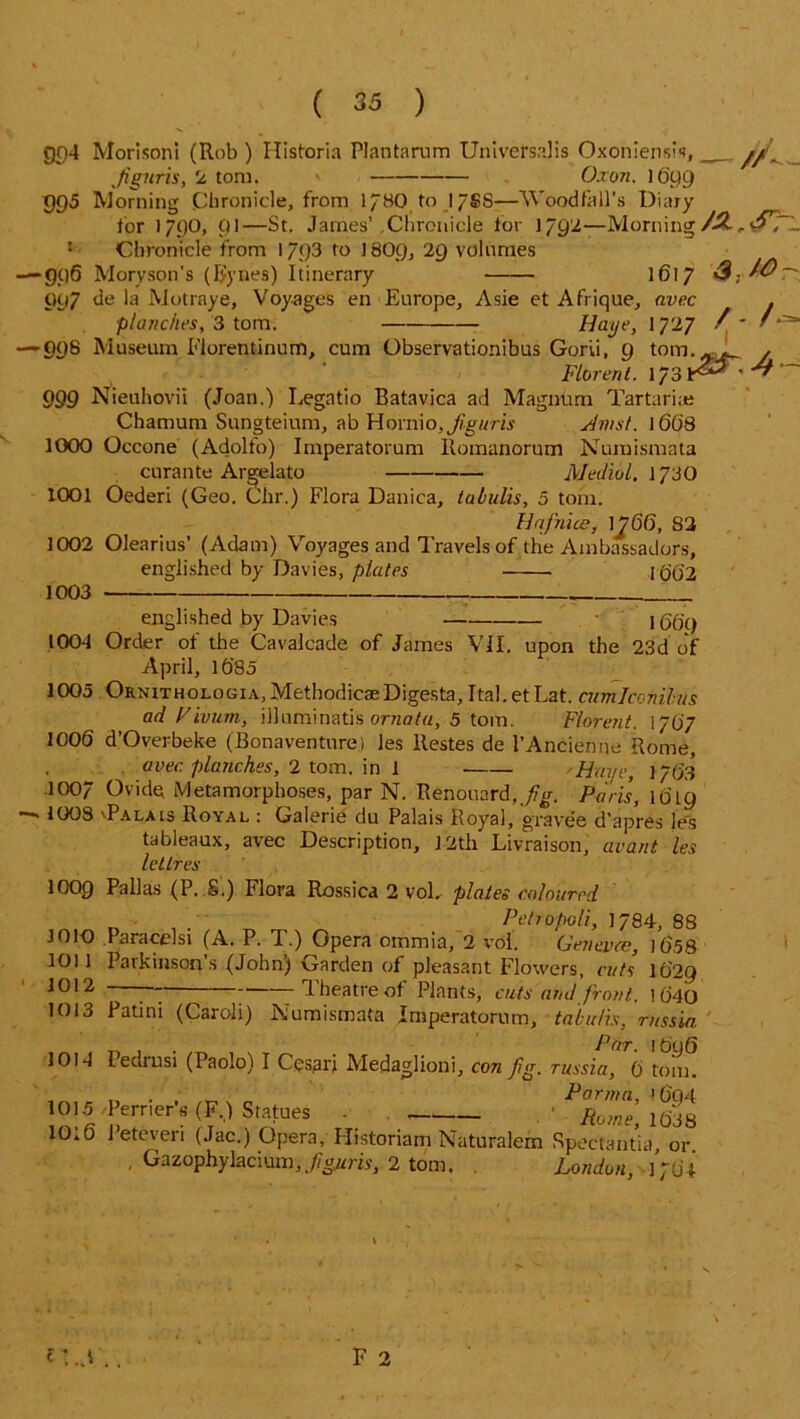 ( 35 )
994 Morisoni (Rob ) Historia Plantarum Universalis Oxoniensis, 11
figuris, 2 tom. Oxon. 1699
995 Morning Chronicle, from 1780 to 1788—Woodfall's Diary
for 1790, 91—St. James' Chronicle for 1792—Morning 12..5.-
Chronicle from 1793 to 1809, 29 volumes
—996 Moryson's (Fynes) Itinerary —— 1617 3.10-
997 de la Motraye, Voyages en Europe, Asie et Afrique, avec
planches, 3 tom. ——— Haye, 1727 1-1-
—998 Museum Florentinum, cum Observationibus Gorii, 9 tom.
Florent. 1731 4-
999 Nieuhovii (Joan.) Legatio Batavica ad Magnum Tartariæ
Chamum Sungteium, ab Hornio, figuris Amst. 1668
1000 Occone (Adolfo) Imperatorum Romanorum Numismata
curante Argelato ——— Mediol. 1730
1001 Oederi (Geo. Chr.) Flora Danica, tabulis, 5 tom.
Hafniæ, 1766, 82
1002 Olearius' (Adam) Voyages and Travels of the Ambassadors,
englished by Davies, plates —— 1662
1003 ———
englished by Davies ——— 1669
1004 Order of the Cavalcade of James VII. upon the 23d of
April, 1685
1005 Ornithologia, Methodicæ Digesta, Ital. et Lat. cum Iconibus
ad Vivum, illuminatis ornata, 5 tom. Florent. 1767
1006 d'Overbeke (Bonaventure) les Restes de l'Ancienne Rome,
avec planches, 2 tom. in 1 —— Haye, 1763
1007 Ovide, Metamorphoses, par N. Renouard, fig. Paris, 1619
—1008 Palais Royal : Galerie du Palais Royal, gravée d'apres les
tableaux, avec Description, 12th Livraison, avant les
lettres
1009 Pallas (P. S.) Flora Rossica 2 vol. plates coloured
Petropoli, 1784, 88
1010 Paracelsi (A. P. T.) Opera ommia, 2 vol. Genevæ, 1658
1011 Parkinson's (John) Garden of pleasant Flowers, cuts 1629
1012 ——— Theatre of Plants, cuts and front. 1640
1013 Patini (Caroli) Numismata Imperatorum, tabulis, russia
Par. 1696
1014 Pedrusi (Paolo) I Cesari Medaglioni, con fig. russia, 6 tom.
Parma, 1694
1015 Perrier's (F.) Statues —— Rome, 1638
1016 Peteveri (Jac.) Opera, Historiam Naturalem Spectantia, or.
Gazophylacium, figuris, 2 tom. London, 1764
F 2